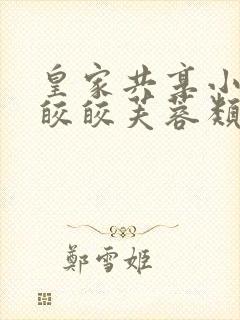 皇家共享小
皎皎芙蓉類
鄭雪姬